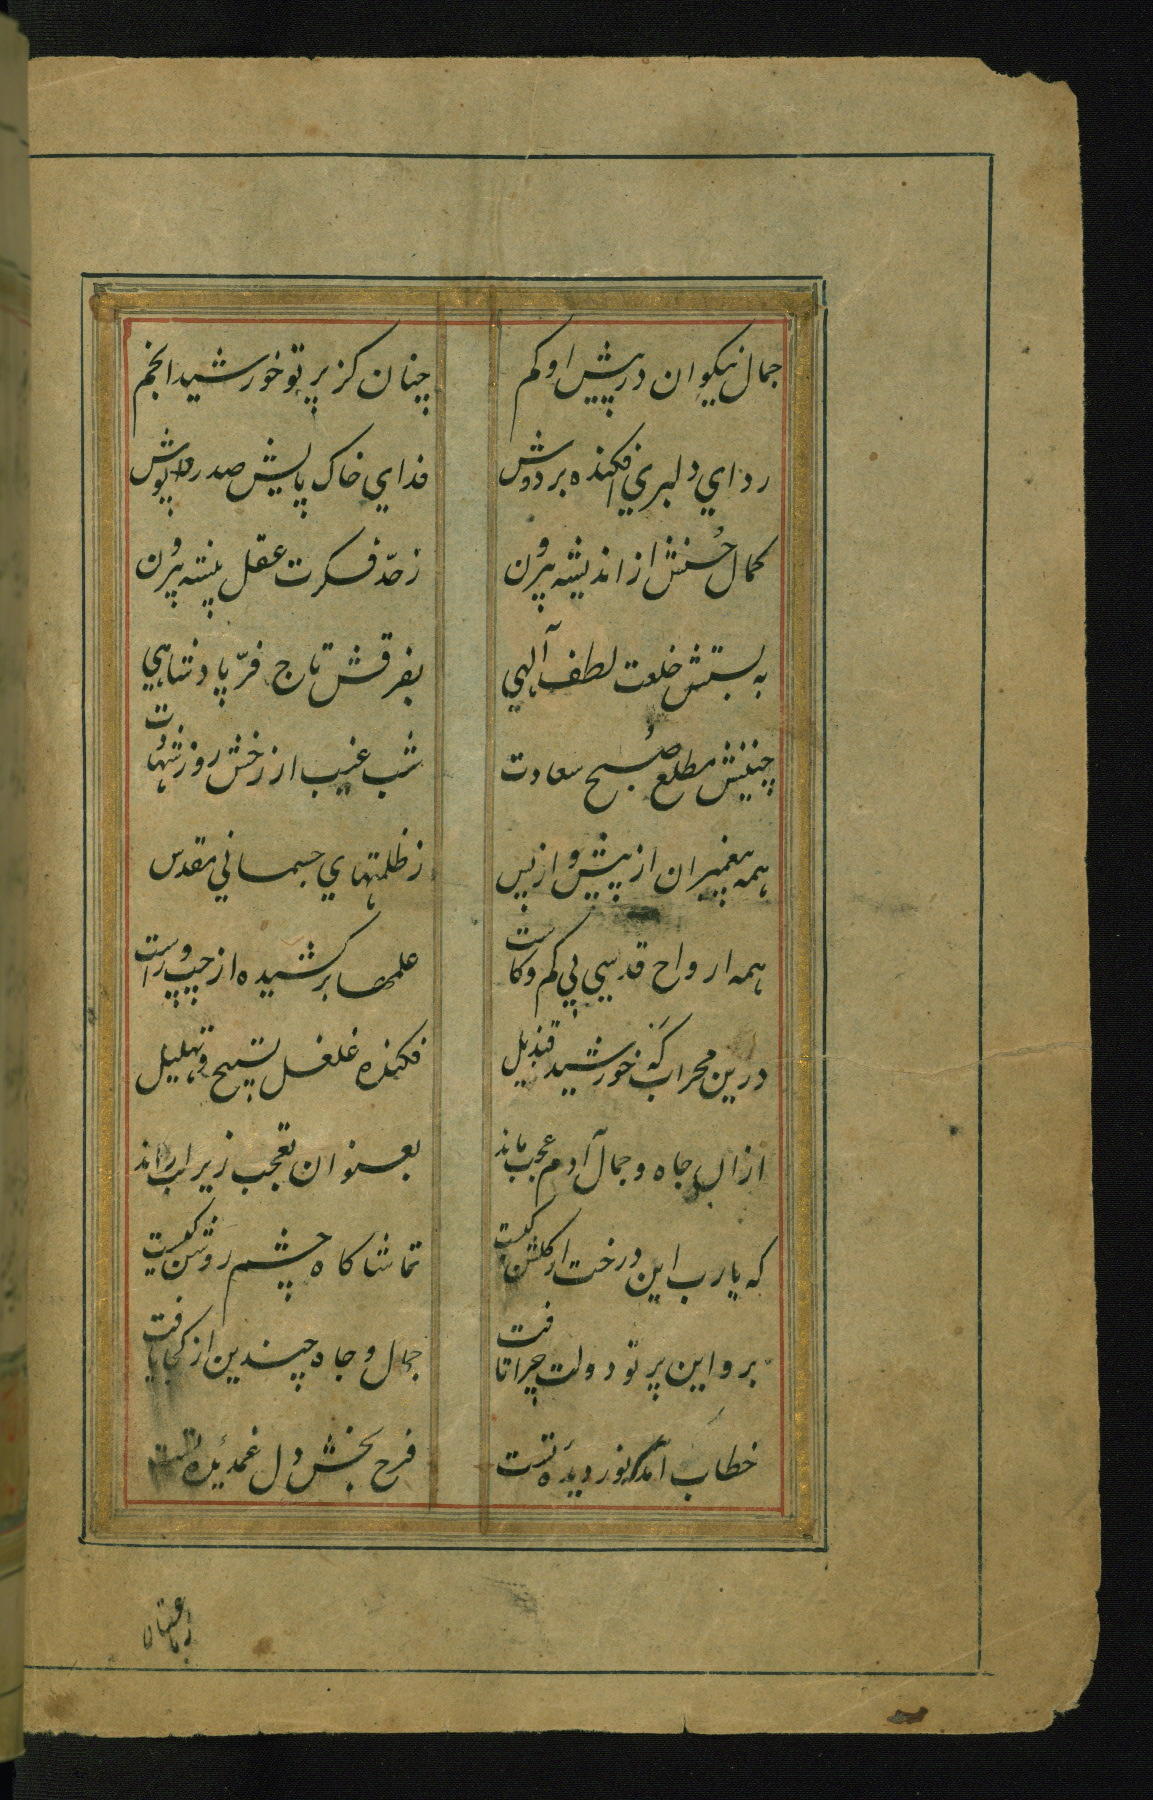 جمال نیکوان در پیش او کم چنان کز پرتو خورشید انجم
ردای دلبری افکنده بر دوش فدای خاک پایش صد رداپوش
کمال حسنش از اندیشه بیرون زحدّ فکرت عقل بیشه بیرون
به بستش خلعت لطف آلهی بفرقش تاج فرّ پادشاهی
جبینش مطلع صُبح سعادت شب غیب از رخش روز شهادت
همه پیغمبران از پیش و از پس ز ظلمتهای جسمانی مقدس
همه ارواح قدسی بی کم و کاست علمها برکشیده از چپ و راست
درین محراب که خورشید قندیل فکنده غلغل تسبیح و تهلیل
ازان جاه و جمال آدم عجب ماند بعنوان تعجب زیر لب راند
که یارب این درخت از گلشن کیست تماشاگاه چشم روشن کیست
برو این پرتو دولت چرا تافت جمال و جاه چندین از کجا یافت
خطاب آمد که نور دیدهٔ تست فرح بخش دل غمدیدهٔ تست